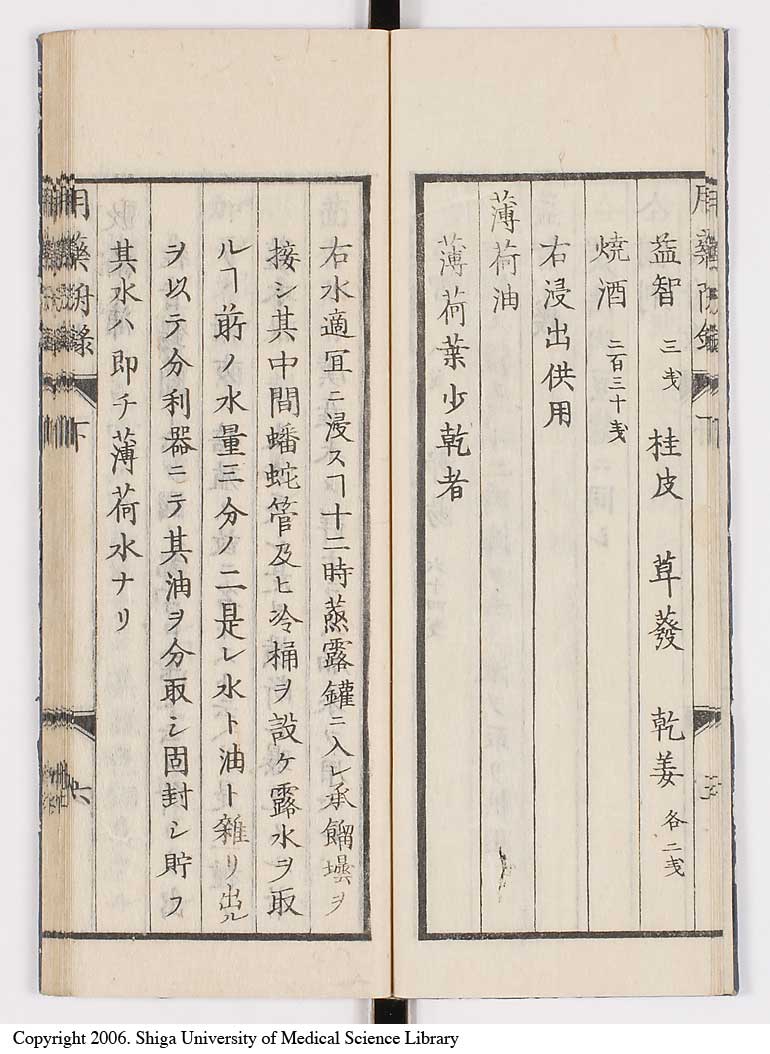 益智 三戔 桂皮 蓽蕟 乾姜 各二戔
燒酒 二百三十戔
右浸出供用
薄荷油
薄荷葉少乾者
右水適冝ニ浸スヿ十二時蒸露鑵ニ入レ承餾壜ヲ
接シ其中間蟠蛇管及ヒ冷桶ヲ設ケ露水ヲ取
ルヿ前ノ水量三分ノ二是レ水ト油ト雜リ出ル
ヲ以テ分利器ニテ其油ヲ分取シ固封シ貯フ
其水ハ即チ薄荷水ナリ
用藥附錄 下 六
Copyright 2006. Shiga University of Medical Science Library